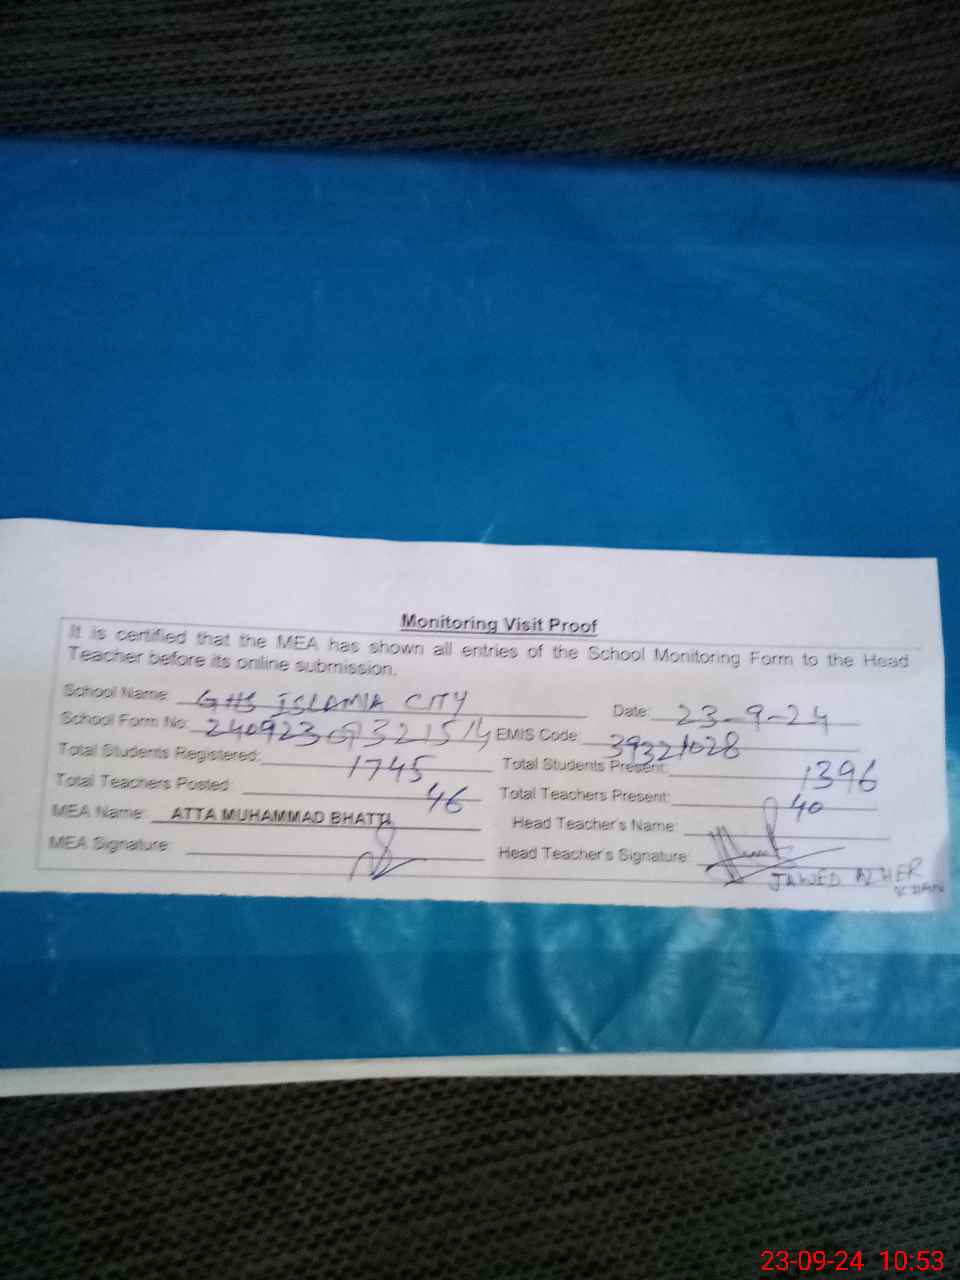 Monitoring Visit Proof
It is certified that the MEA has shown all entries of the School Monitoring Form to the Head
Teacher before its online submission.
School Name: GHS ISLAMIA CITY Date: 23-9-24
School Form No: EMIS Code: 39321028
Total Students Registered: 1745 Total Students Present: 1396
Total Teachers Posted: 46 Total Teachers Present: 40
MEA Name: ATTA MUHAMMAD BHATTI Head Teacher's Name:
MEA Signature: Head Teacher's Signature:
JAWED AZHER
23-09-24 10:53